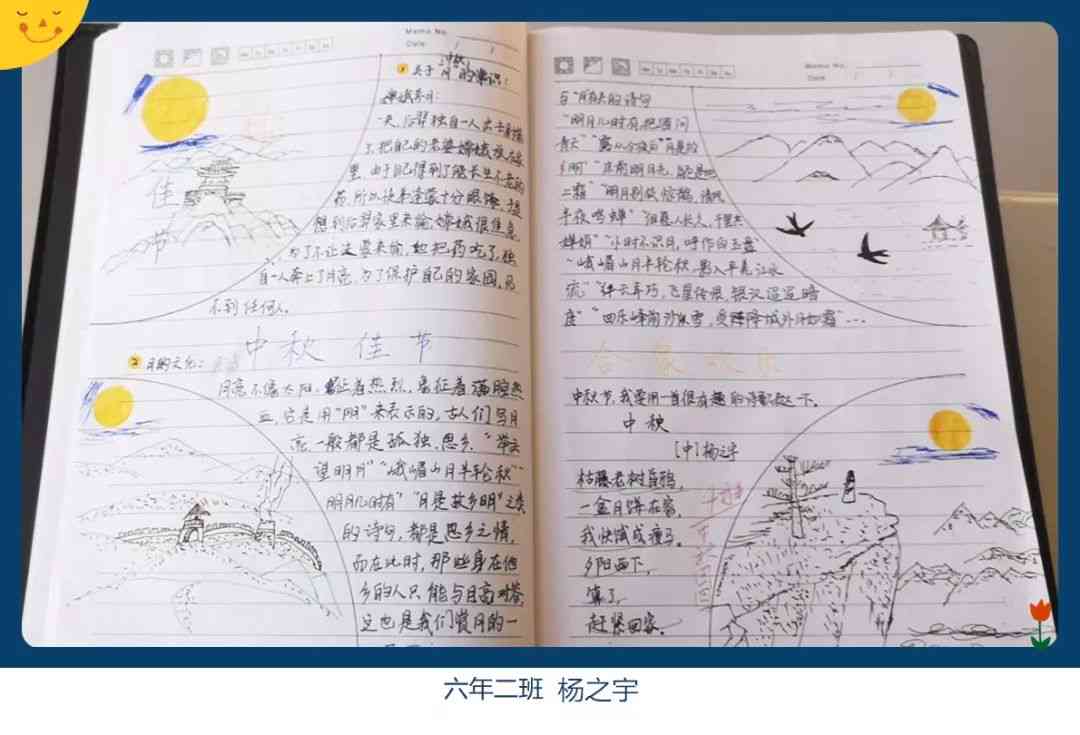 Memo No.
Date
1 关于"月"的常识:
嫦娥奔月:
一天,后羿独自一人出去
了,把自己的老婆嫦娥放在家
里,由于自己得到了
药,所以徒弟逢蒙十分眼馋,于是
想到后羿家里来偷,嫦娥很焦急,
为了不让逢蒙来偷,她把药吃了,独
自一人奔上了月亮,为了保护自己的家园,见
不到任何人。
佳
节
中秋佳节
2 月的文化:
月亮不像太阳,象征着热烈,象征着满腔热
血,它是用"阴"来表示的,古人们写月
亮,一般都是孤独、思乡,"举头
望明月""峨嵋山月半轮秋"
明月几时有""月是故乡明"之类
的诗句,都是思乡之情,
而在此时,那些身在他
乡的人只能与月亮对答,
这也是我们赏月的一
Memo No.
Date
与"月"有关的诗句
"明月几时有,把酒问
青天""露从今夜白,月是故
乡明""床前明月光,疑是地
上霜""明月别枝惊鹊,清风
半夜鸣蝉""但愿人长久,千里共
婵娟""小时不识月,呼作白玉盘"
"峨嵋山月半轮秋,影入平羌江水
流""纤云弄巧,飞星传恨,银汉迢迢暗
度""回乐峰前沙似雪,受降城外月如霜"…
合家欢乐
中秋节,我要用一首很有趣的诗歌
中秋
[中]杨
枯藤老树昏鸦,
一盒月饼在窗,
我快饿成瘦马,
夕阳西下,
算了,
赶紧回家。
六年二班 杨之宇